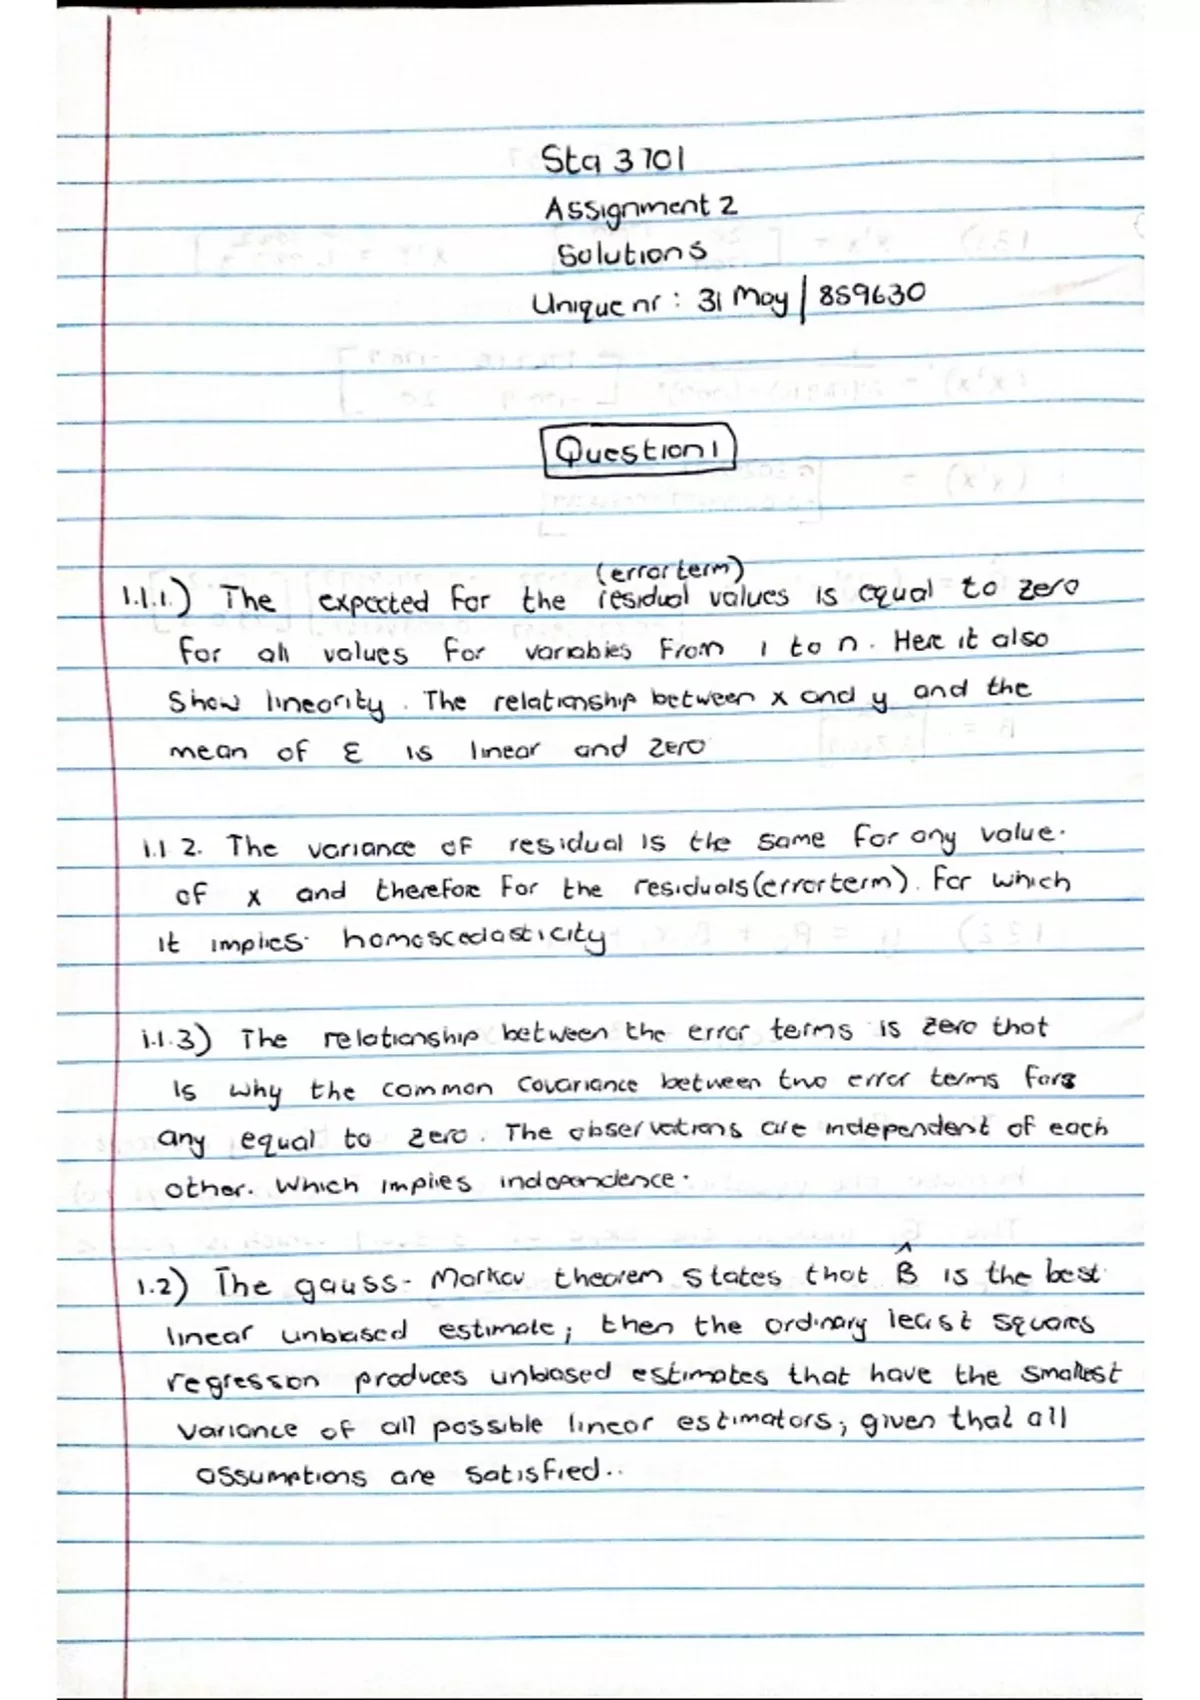 Sta 3701
Assignment 2
Solutions
Unique nr : 31 May | 859630
Question 1
(error term)
1.1.1.) The expected for the residual values is equal to zero
for all values for variables from 1 to n. Here it also
Show linearity. The relationship between x and y and the
mean of ε is linear and zero
1.1 2. The variance of residual is the same for any value.
of x and therefore for the residuals (error term). For which
it implies. homoscedasticity
1.1.3) The relationship between the error terms is zero that
is why the common covariance between two error terms for
any equal to zero. The observations are independent of each
other. Which implies independence.
1.2) The gauss-Markov theorem states that B̂ is the best
linear unbiased estimate; then the ordinary least squares
regression produces unbiased estimates that have the smallest
variance of all possible linear estimators; given that all
assumptions are satisfied..